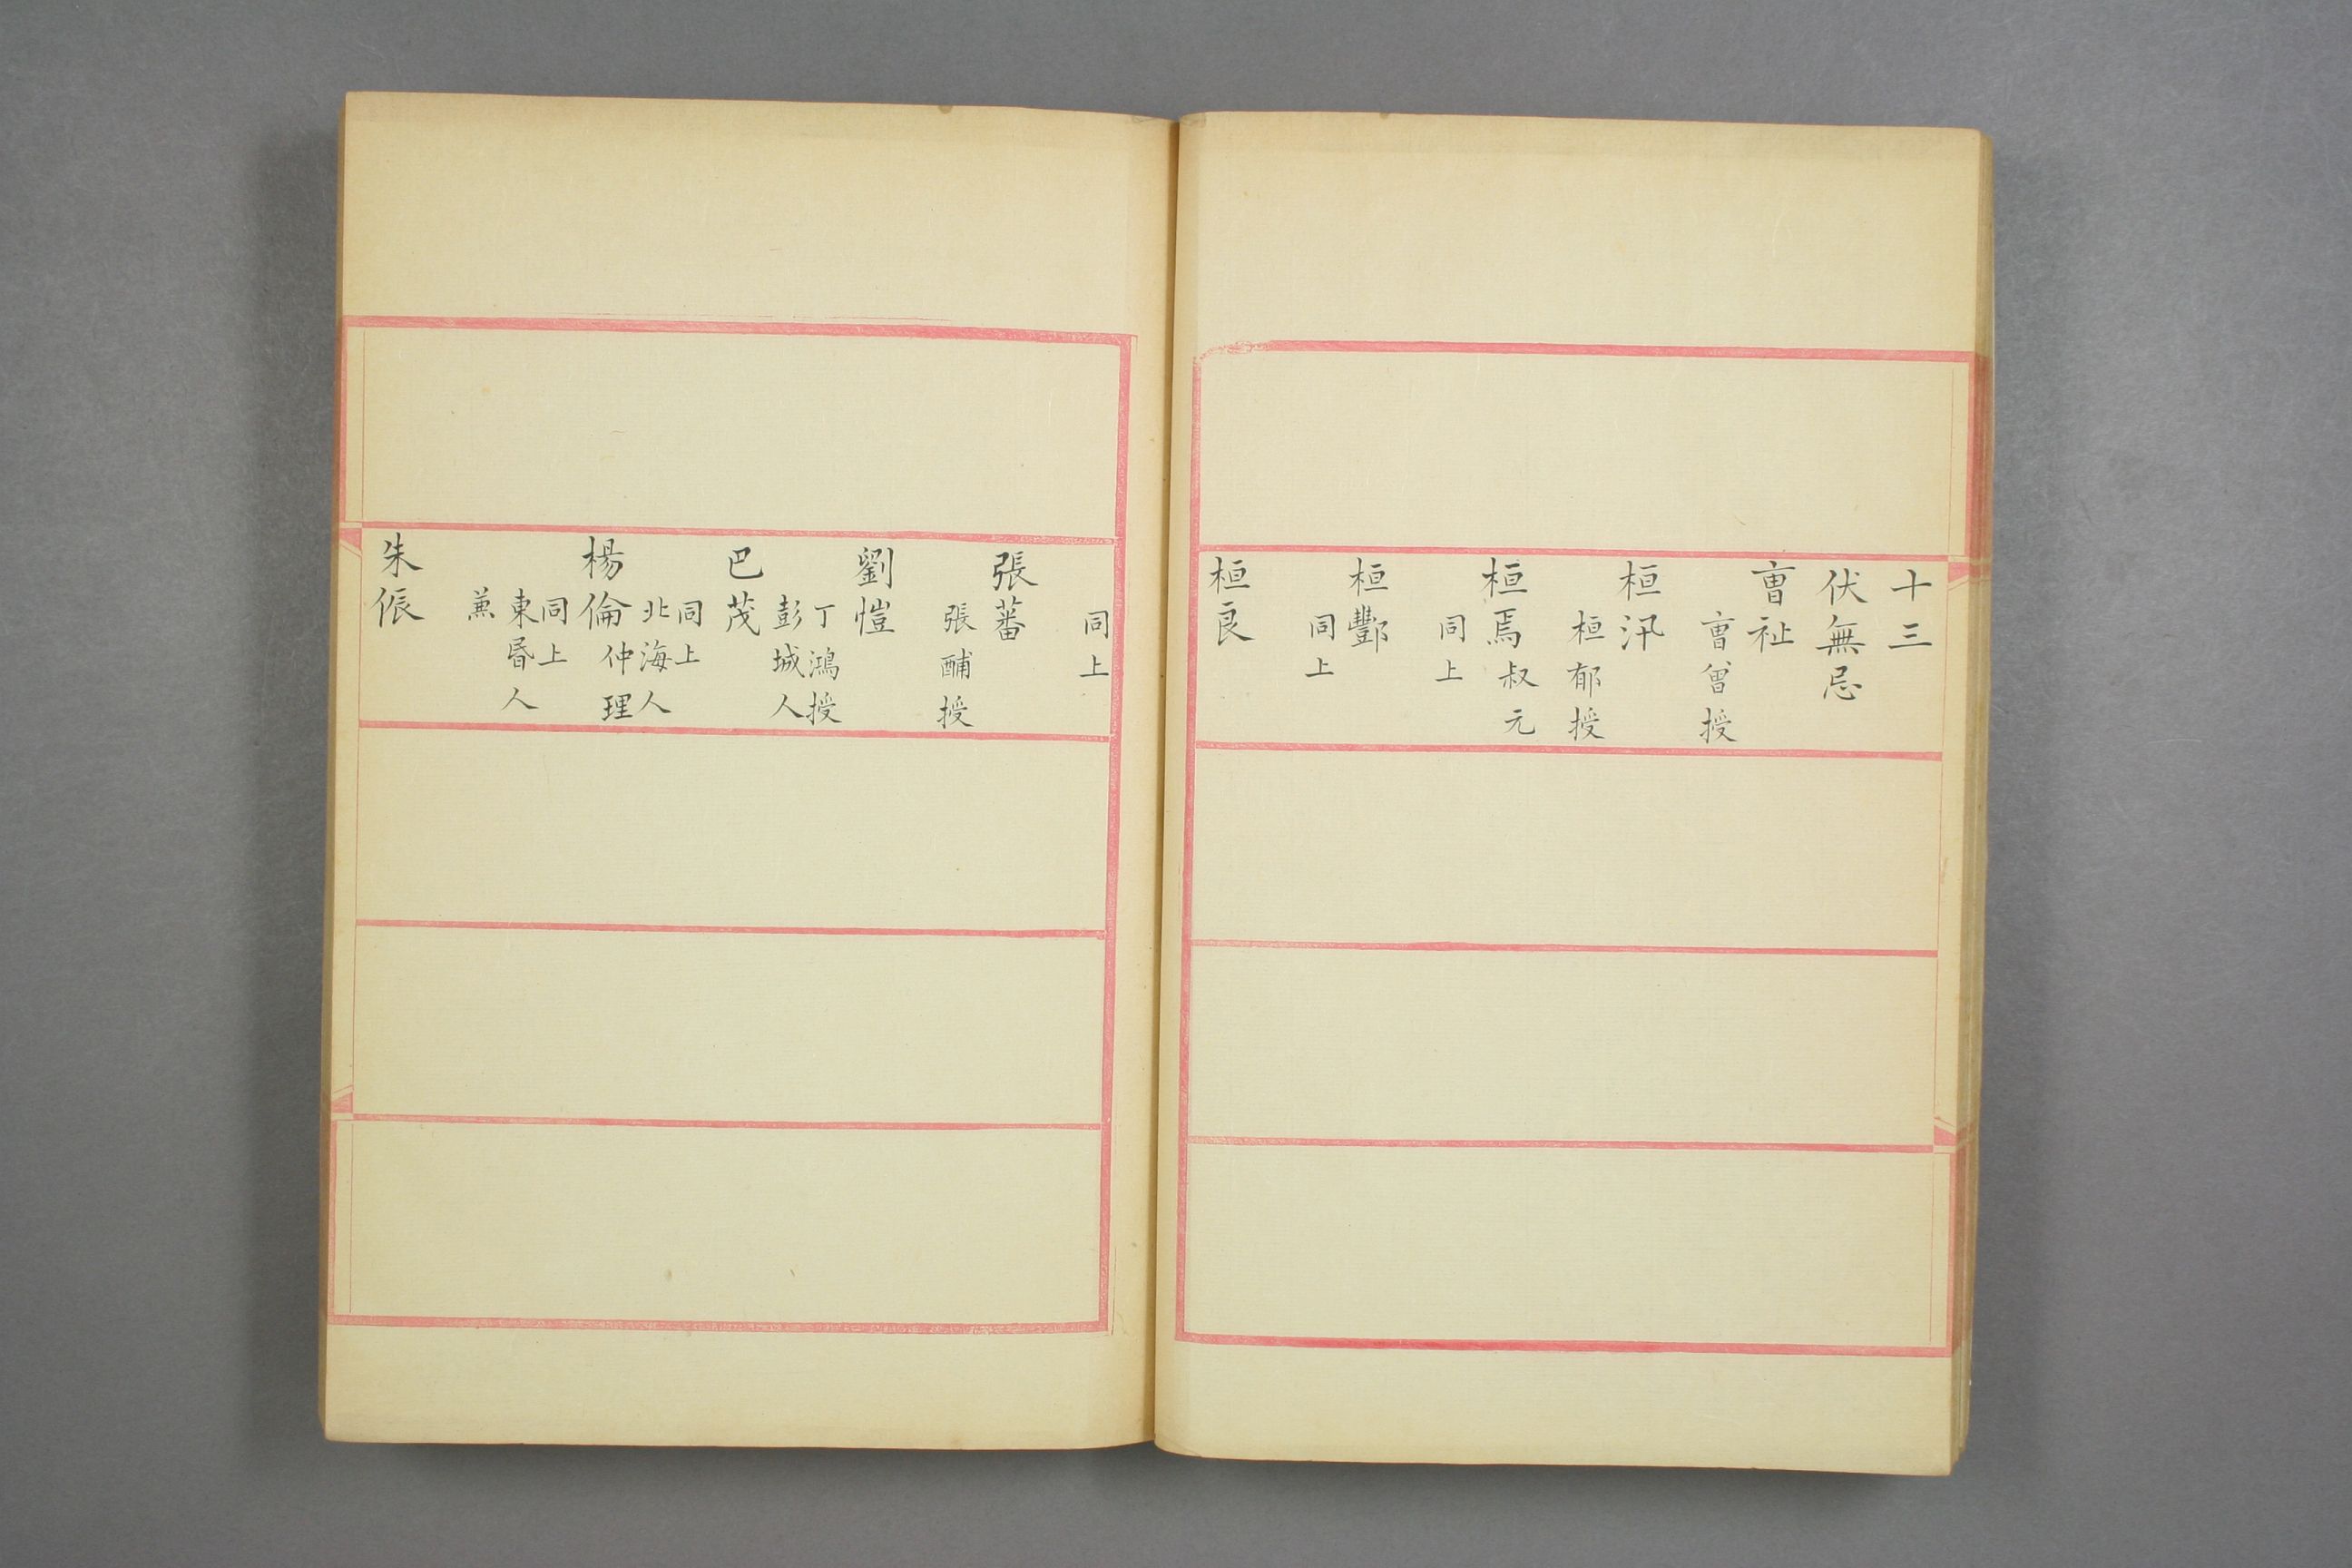 十三
伏無忌
曺祉
曺曾授
桓汛
桓郁授
桓焉叔元
同上
桓酆
同上
桓良
同上
張蕃
張酺授
劉愷
丁鴻授
彭城人
巴茂
同上
北海人
楊倫仲理
同上
東昬人
兼
朱倀